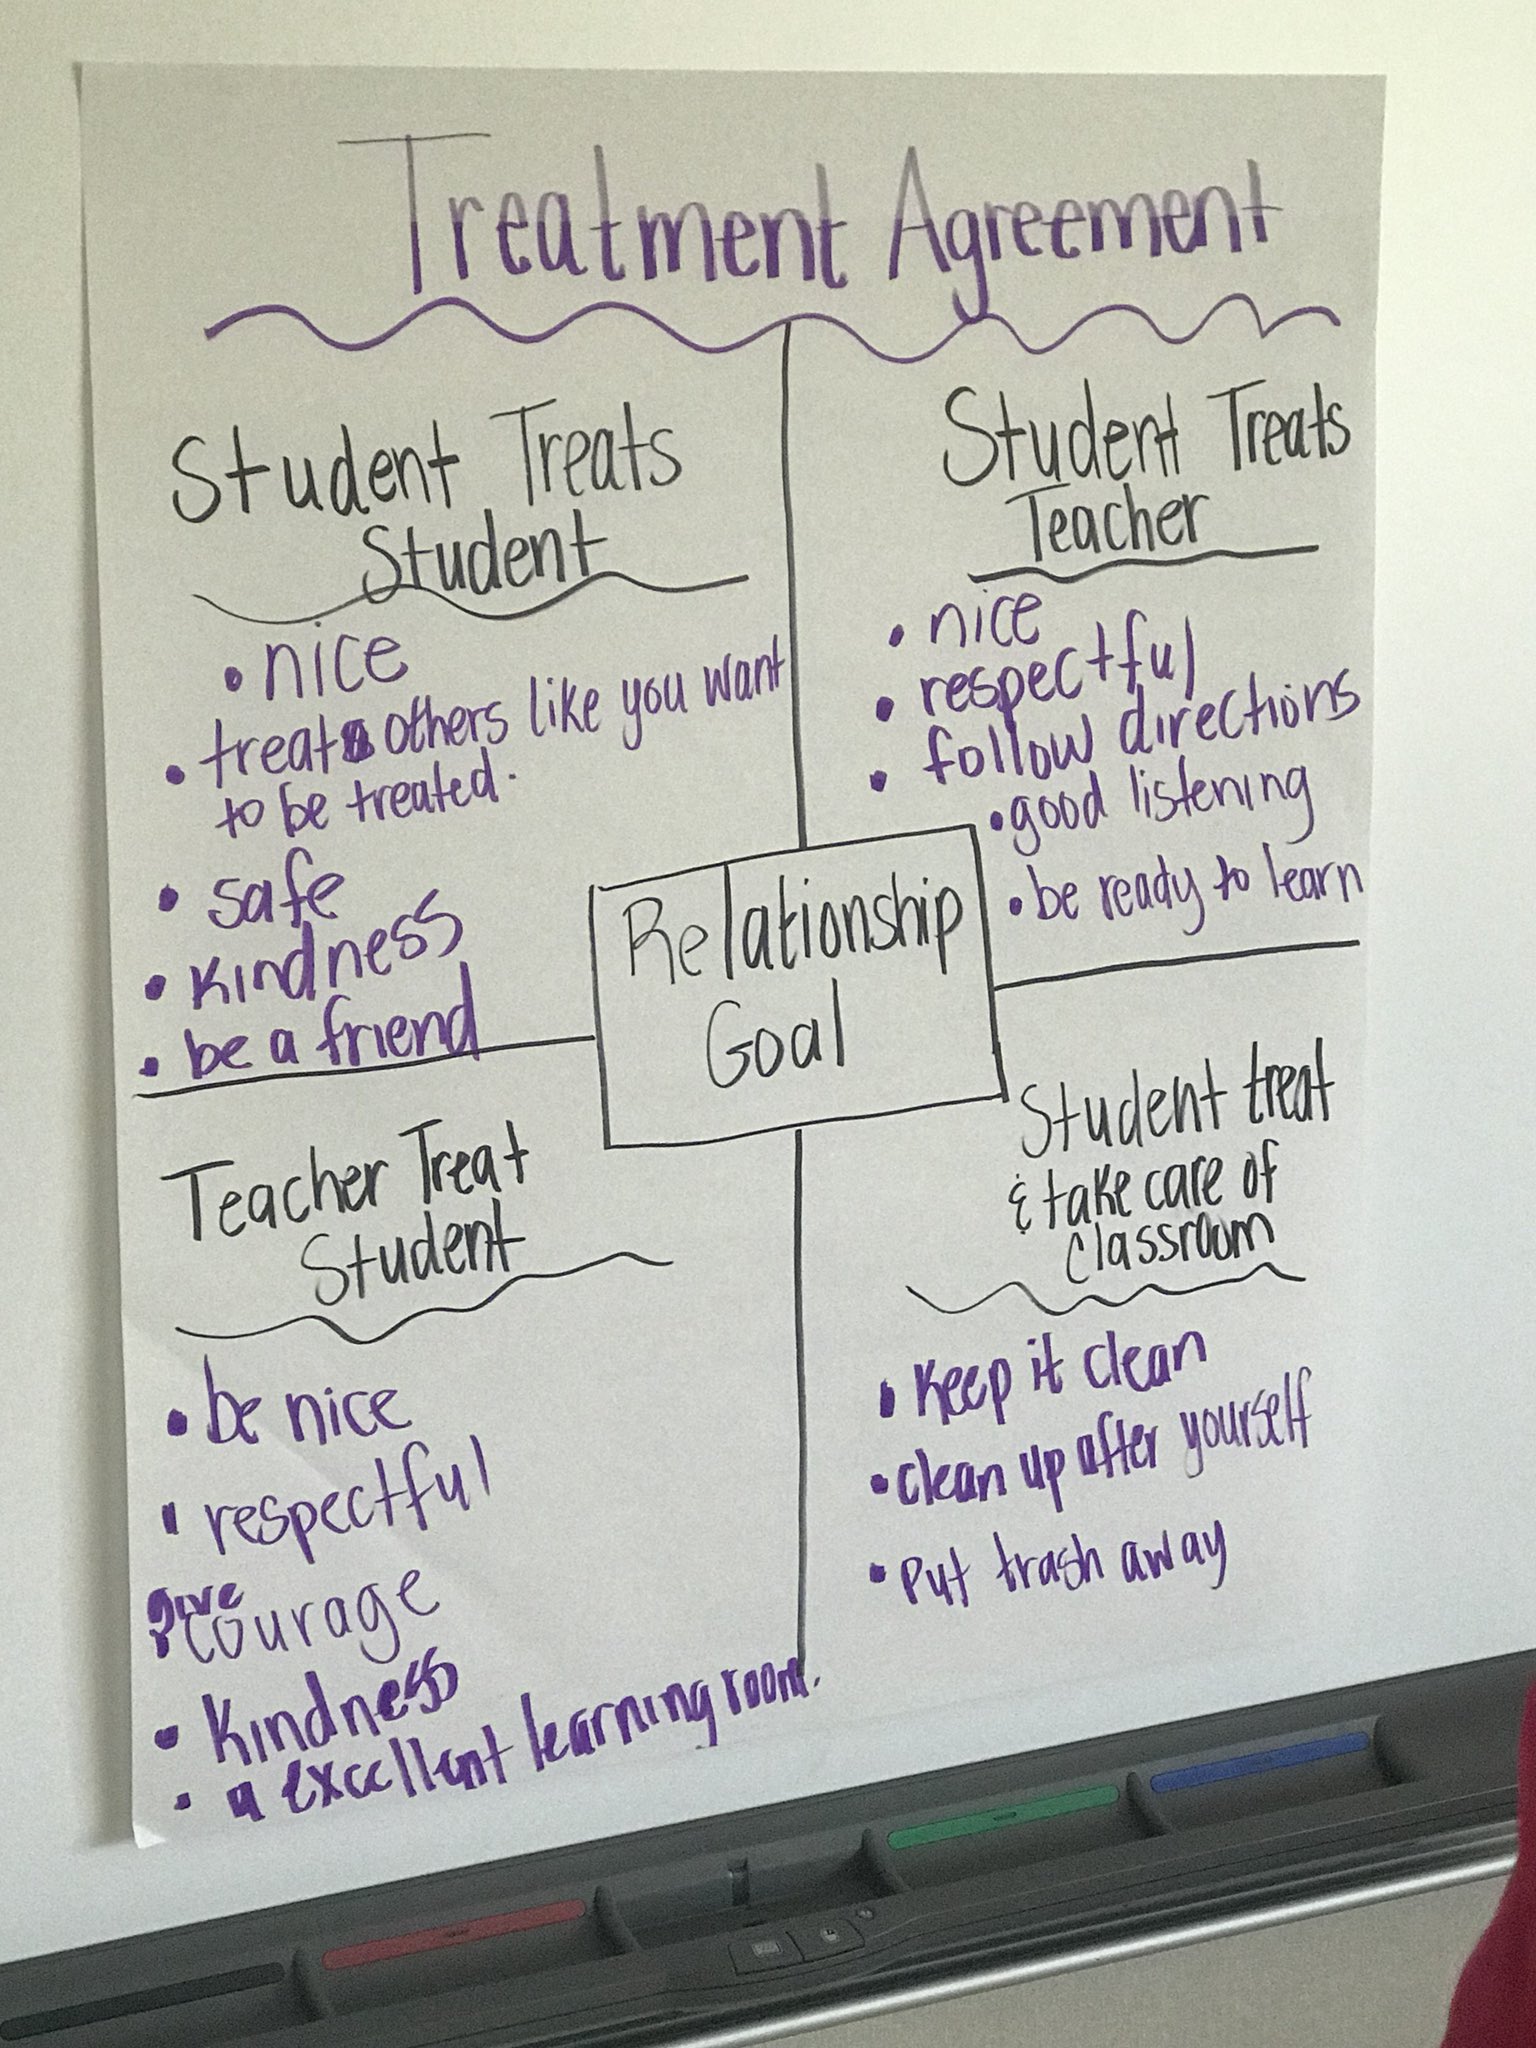 Treatment Agreement
Student Treats
Student
• nice
• treat others like you want
to be treated.
• safe
• kindness
• be a friend
Student Treats
Teacher
• nice
• respectful
• follow directions
• good listening
• be ready to learn
Relationship
Goal
Teacher Treat
Student
• be nice
• respectful
give
• courage
• Kindness
• a excellent learning room.
Student treat
& take care of
classroom
• Keep it clean
• clean up after yourself
• Put trash away